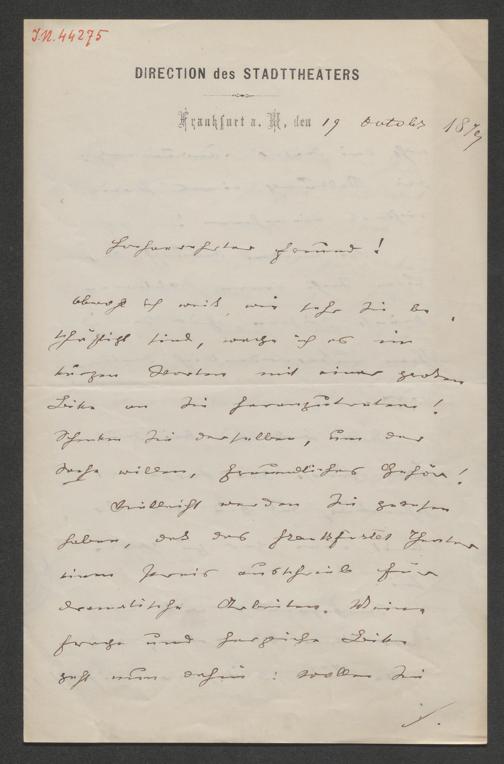 J.N. 44275
DIRECTION des STADTTHEATERS
Frankfurt a. M., den 19 October 1879
Hochverehrter Freund!
Obwohl ich weiß, wie sehr Sie be
schäftigt sind, wage ich es in
kurzen Worten mit einer großen
Bitte an Sie heranzutreten!
Schenken Sie derselben, um der
Sache willen, freundliches Gehör!
Vielleicht werden Sie gelesen
haben, daß das Frankfurter Theater
einen Preis ausschrieb für
dramatische Arbeiten. Meine
Frage und herzliche Bitte
geht nun dahin: wollen Sie